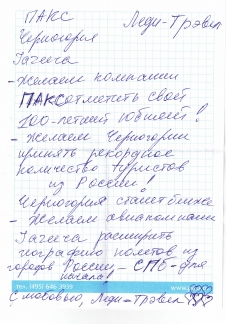 ПАКС Леди-Трэвел
Черногория
Гачеча
- Желаем компании
ПАКС отметить свой
100-летний юбилей!
- Желаем Черногории
принять рекордное
количество туристов
из России!
Черногория станет ближе
- Желаем авиакомпании
Гачеча расширить
географию полетов из
городов России - СПБ - для
начала!
тел. (495) 646 3939
С любовью, Леди-Трэвел